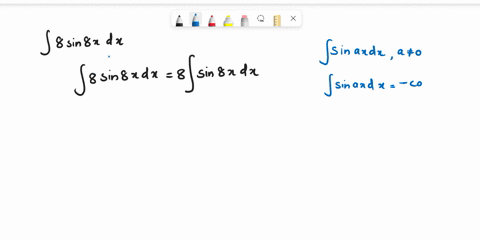 ∫ 8 sin 8x dx
∫ 8 sin 8x dx = 8 ∫ sin 8x dx
∫ sin ax dx , a ≠ 0
∫ sin ax dx = -co